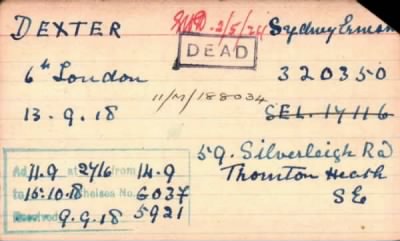 DEXTER
EWD. 2/5/24
Sydney Ernest
DEAD
6th London
320350
13.9.18
11/M/188034
SEL. 17116
59. Silverleigh Rd
Thornton Heath
S E
11.9 at 2716 from 14.9
to 15.10.18 Chelsea No. 6037
9.9.18 5921